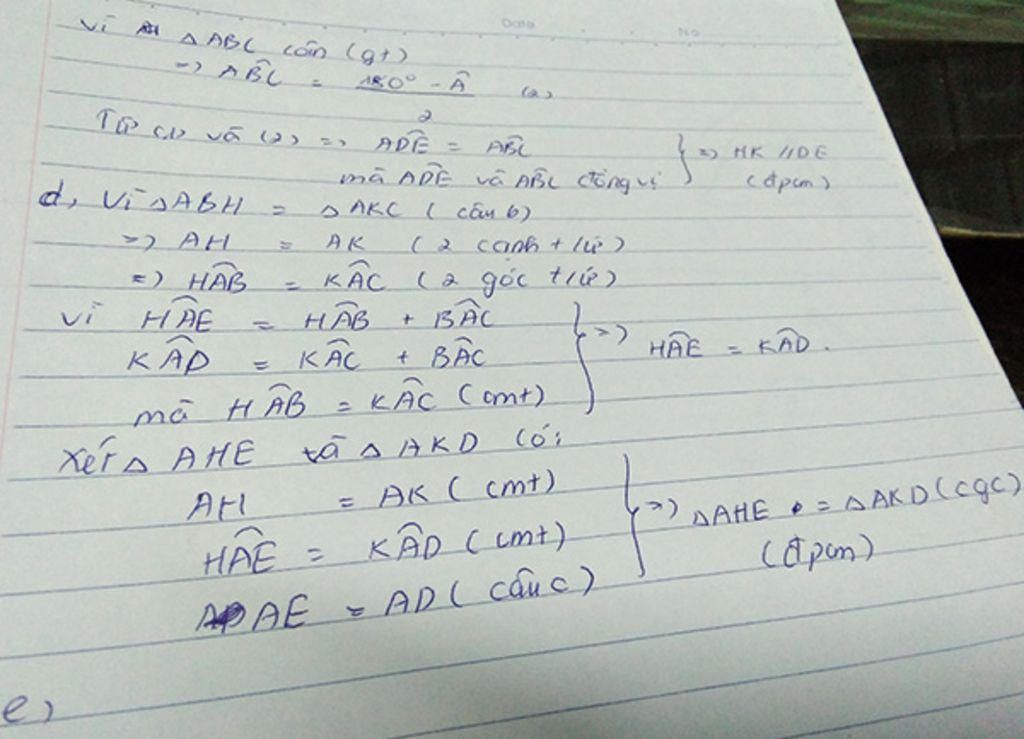 Date No
Vì △ABC cân (gt)
=> ABC^ = 180° - Â / 2 (2)
Từ (1) và (2) => ADE^ = ABC^
mà ADE^ và ABC^ đồng vị } => HK // DE (đpcm)
d, Vì △ABH = △AKC (câu b)
=> AH = AK (2 cạnh t/ứ)
=> HAB^ = KAC^ (2 góc t/ứ)
Vì HAE^ = HAB^ + BAC^
KAD^ = KAC^ + BAC^ } => HAE^ = KAD^.
mà HAB^ = KAC^ (cmt)
Xét △AHE và △AKD có:
AH = AK (cmt)
HAE^ = KAD^ (cmt) } => △AHE = △AKD (cgc)
(đpcm)
AE = AD (câu c)
e)